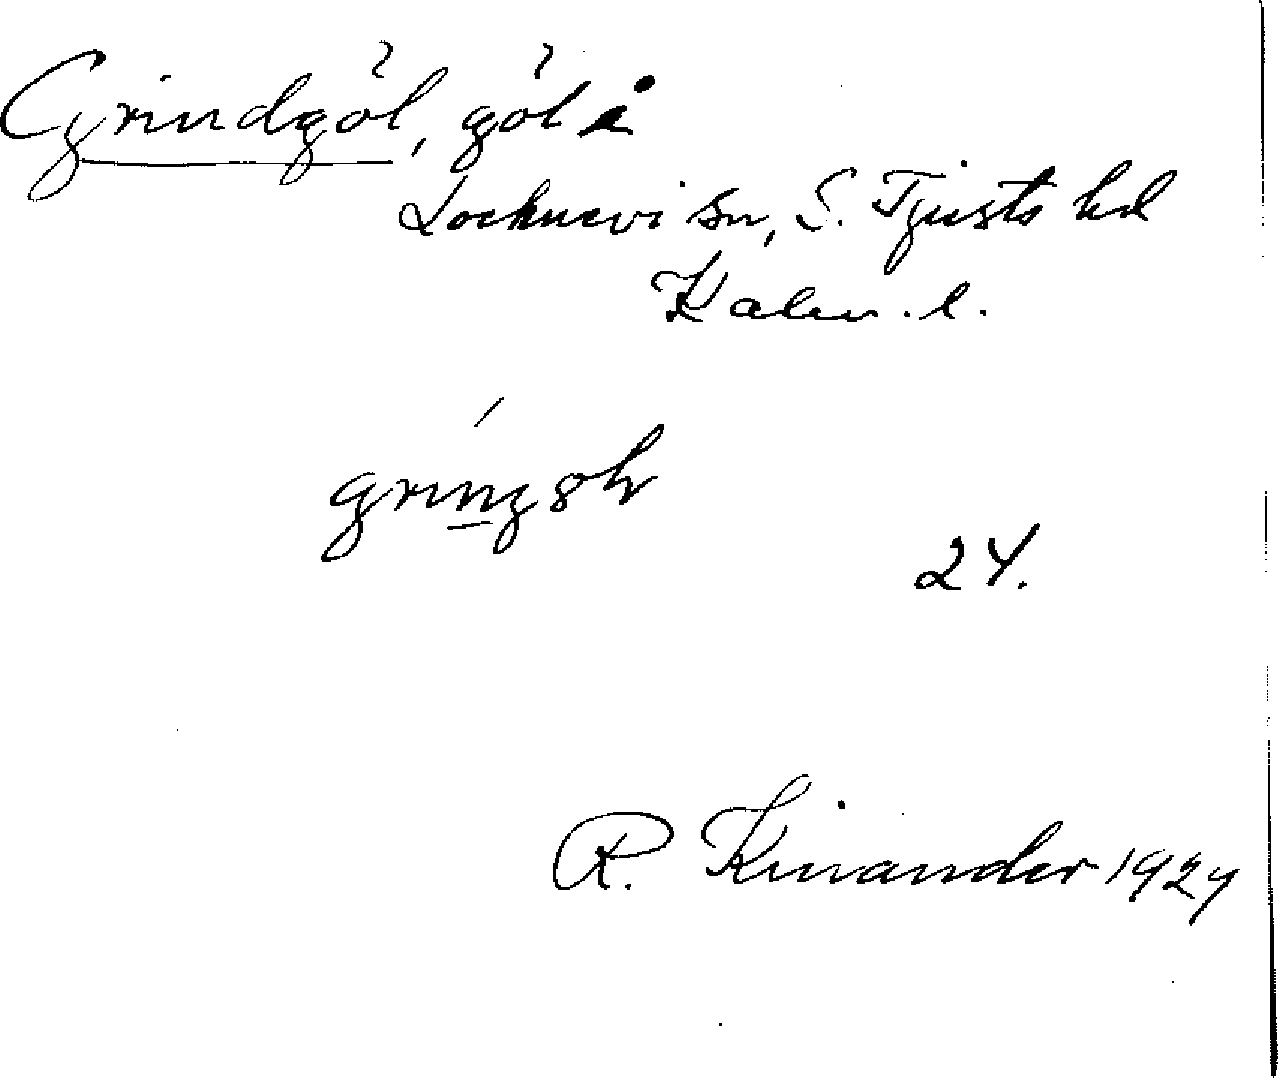 Grindgöl, göl i
Locknevi sn, S. Tjusts hd
Kalm. l.
24.
R. Kinander 1924